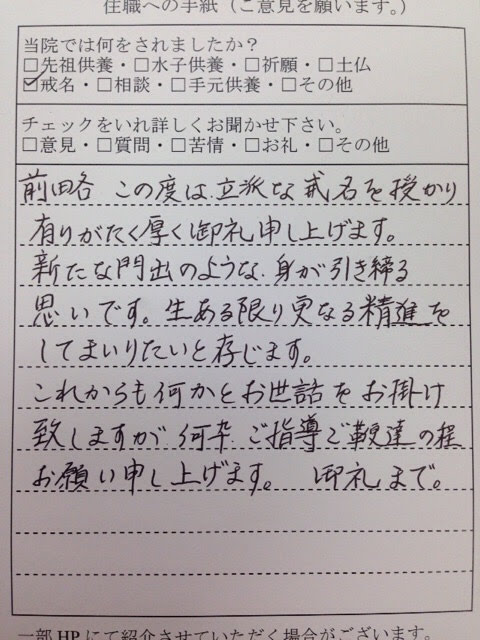 住職への手紙（ご意見を願います。）
当院では何をされましたか？
□先祖供養・□水子供養・□祈願・□土仏
☑戒名・□相談・□手元供養・□その他
チェックをいれ詳しくお聞かせ下さい。
□意見・□質問・□苦情・□お礼・□その他
前略 この度は立派な戒名を授かり
有りがたく厚く御礼申し上げます。
新たな門出のような 身が引き締る
思いです。生ある限り更なる精進を
してまいりたいと存じます。
これからも何かとお世話をお掛け
致しますが 何卒 ご指導ご鞭達の程
お願い申し上げます。 御礼まで。
一部HPにて紹介させていただく場合がございます。